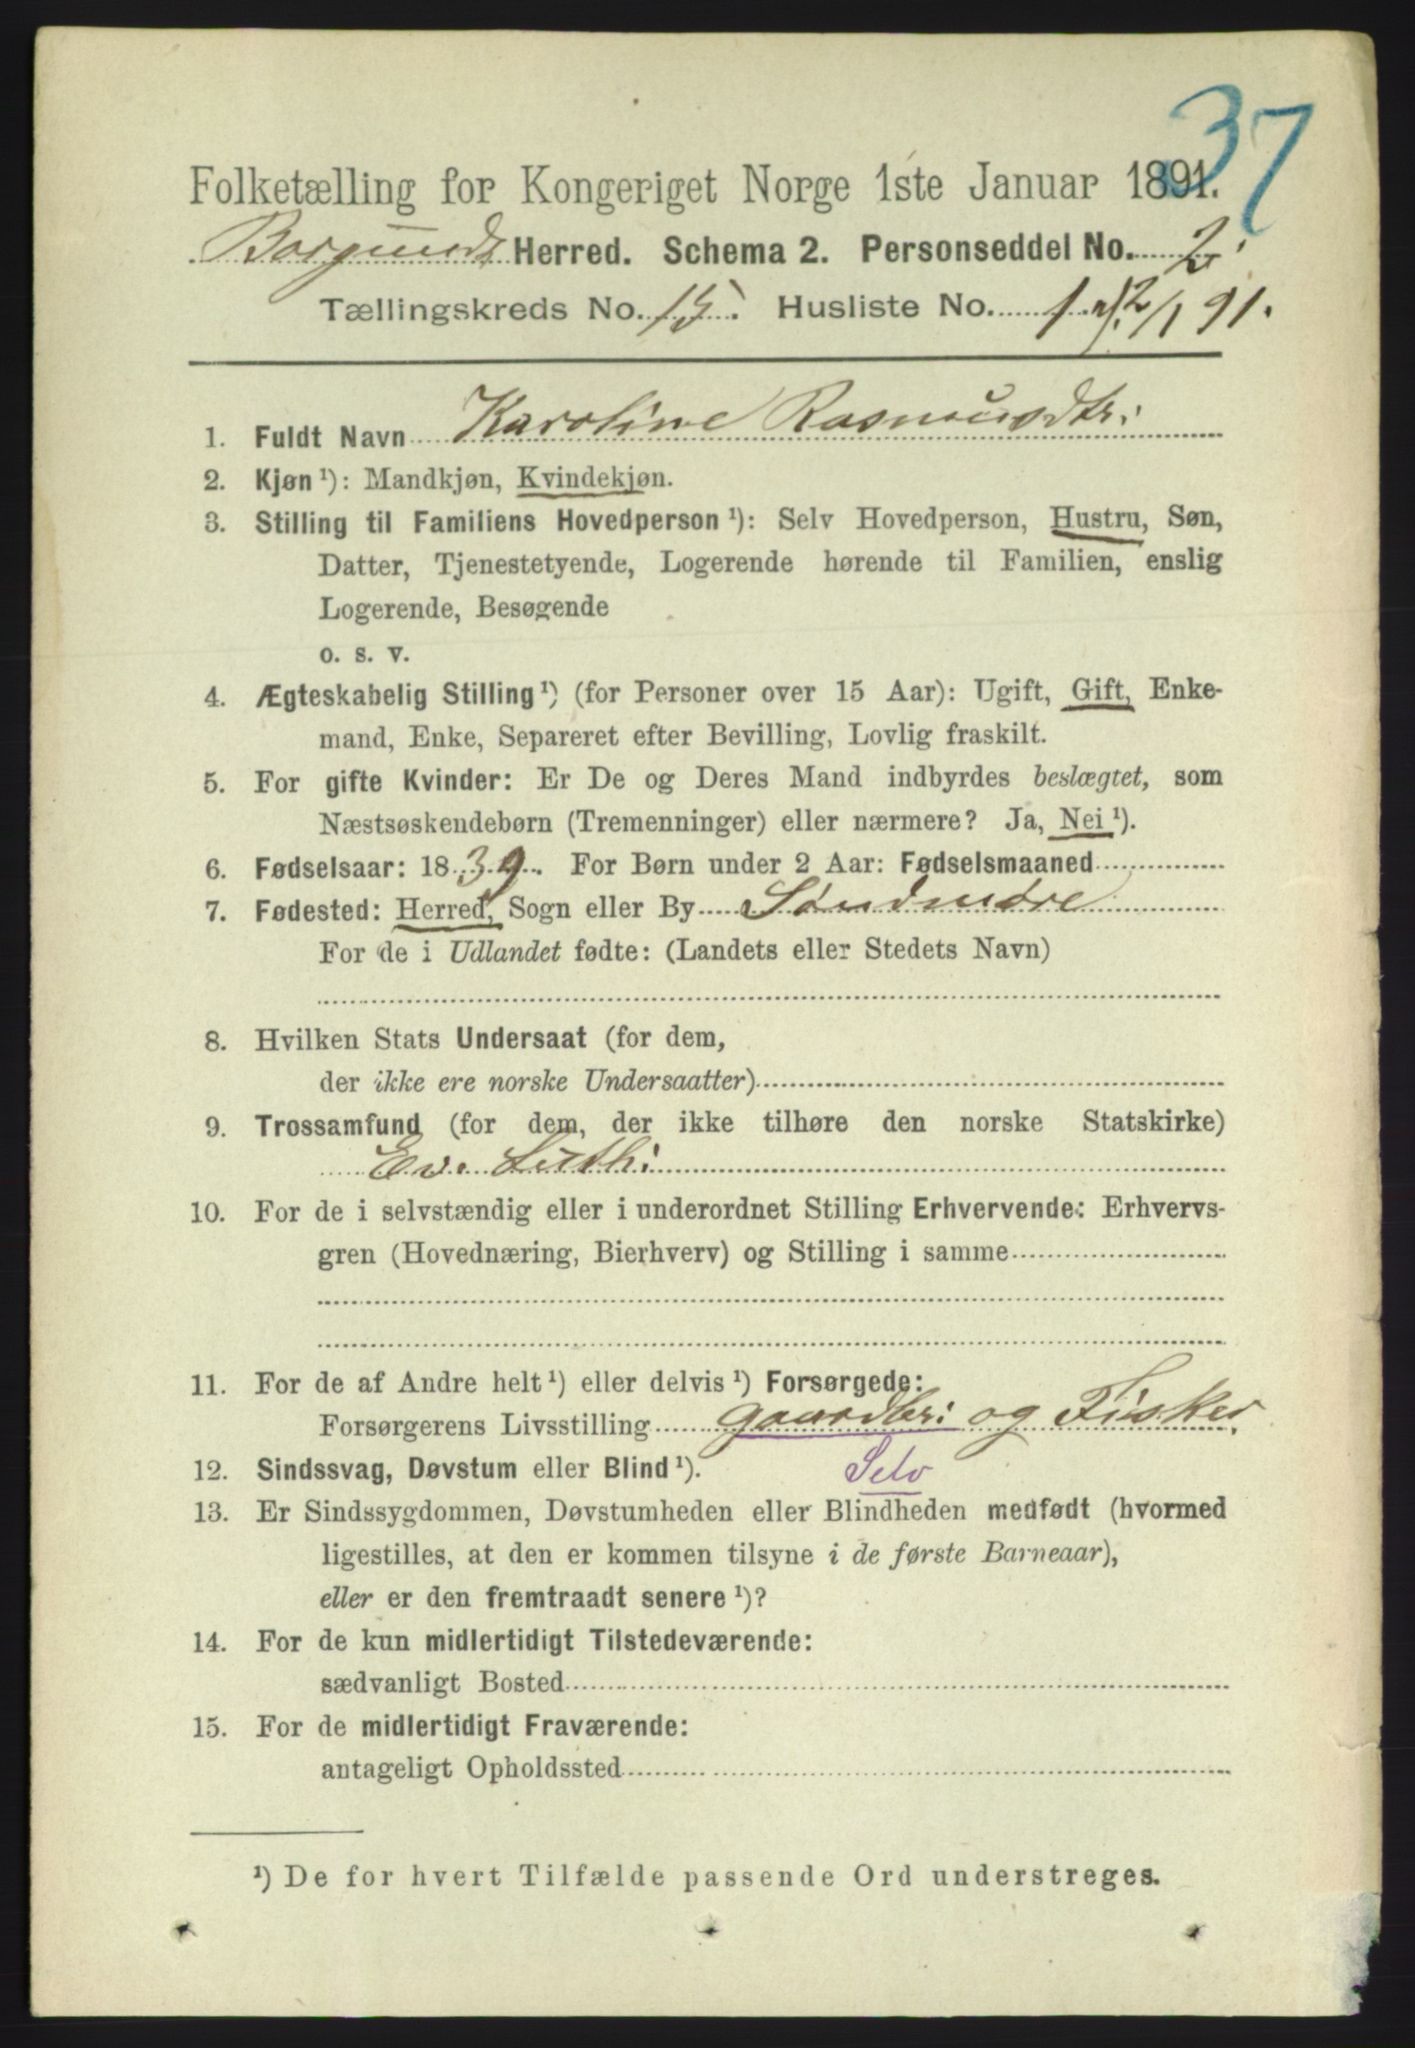 37
Folketælling for Kongeriget Norge 1ste Januar 1891.
Borgunds Herred. Schema 2. Personseddel No. 2.
Tællingskreds No. 15. Husliste No. 1 2/1 91.
1. Fuldt Navn Karoline Rasmusdtr:
2. Kjøn ¹): Mandkjøn, Kvindekjøn.
3. Stilling til Familiens Hovedperson ¹): Selv Hovedperson, Hustru, Søn,
Datter, Tjenestetyende, Logerende hørende til Familien, enslig
Logerende, Besøgende
o. s. v.
4. Ægteskabelig Stilling ¹) (for Personer over 15 Aar): Ugift, Gift, Enke-
mand, Enke, Separeret efter Bevilling, Lovlig fraskilt.
5. For gifte Kvinder: Er De og Deres Mand indbyrdes beslægtet, som
Næstsøskendebørn (Tremenninger) eller nærmere? Ja, Nei ¹).
6. Fødselsaar: 1839. For Børn under 2 Aar: Fødselsmaaned
7. Fødested: Herred, Sogn eller By Søndmøre
For de i Udlandet fødte: (Landets eller Stedets Navn)
8. Hvilken Stats Undersaat (for dem,
der ikke ere norske Undersaatter)
9. Trossamfund (for dem, der ikke tilhøre den norske Statskirke)
Ev. Luth:
10. For de i selvstændig eller i underordnet Stilling Erhvervende: Erhvervs-
gren (Hovednæring, Bierhverv) og Stilling i samme
11. For de af Andre helt ¹) eller delvis ¹) Forsørgede:
Forsørgerens Livsstilling gaardbr: og Fisker,
12. Sindssvag, Døvstum eller Blind ¹). Selv
13. Er Sindssygdommen, Døvstumheden eller Blindheden medfødt (hvormed
ligestilles, at den er kommen tilsyne i de første Barneaar),
eller er den fremtraadt senere ¹)?
14. For de kun midlertidigt Tilstedeværende:
sædvanligt Bosted
15. For de midlertidigt Fraværende:
antageligt Opholdssted
¹) De for hvert Tilfælde passende Ord understreges.